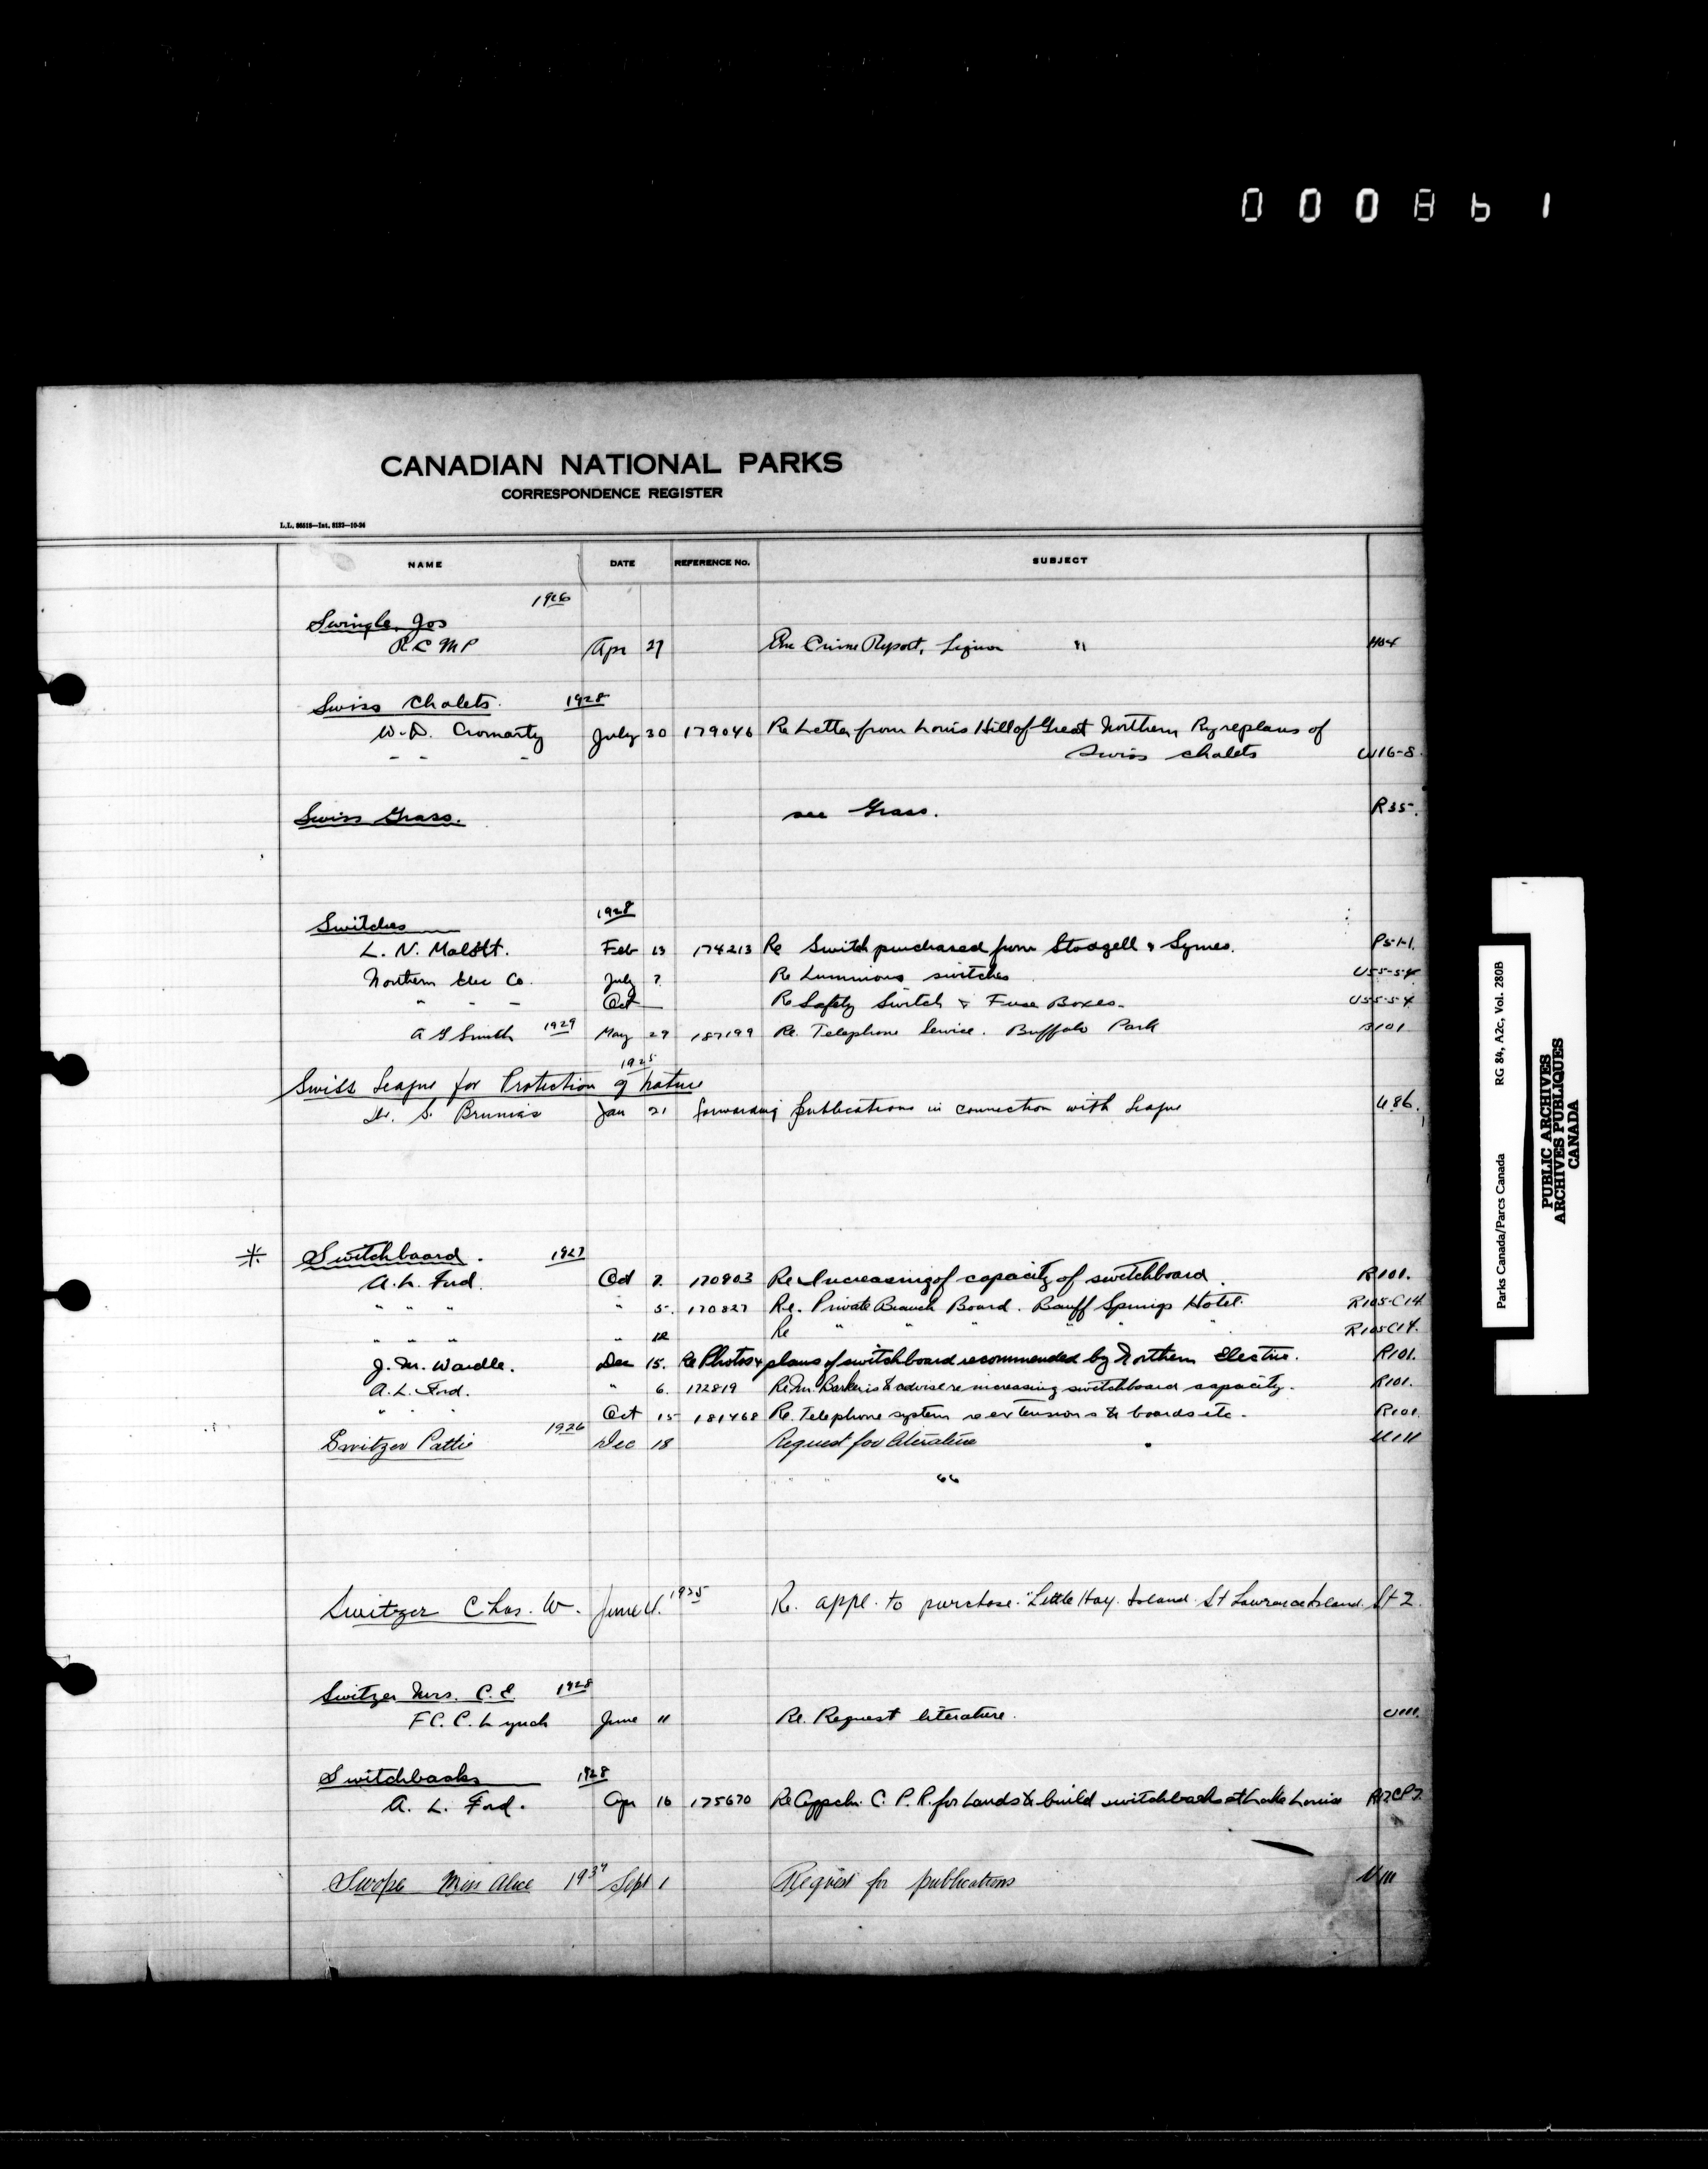 000861
CANADIAN NATIONAL PARKS
CORRESPONDENCE REGISTER
NAME DATE REFERENCE No. SUBJECT
1926
Swingle, Jos
R C M P Apr 27 Crime Report, Liquor " H04
Swiss Chalets. 1928
W. D. Cromarty July 30 179046 Re Letter from Louis Hill of Great Northern Ry re plans of
- - - Swiss chalets W16-8
Swiss Grass. see Grass. R35.
Switches 1928
L. N. Malott. Feb 13 174213 Re Switch purchased from Stodgell & Symes.
Northern Elec Co. July 7. Re Luminous switches U55-5-4
" - - Oct — Re Safety Switch & Fuse Boxes. U55-5-4
A G Smith 1929 May 27 187199 Re. Telephone Service. Buffalo Park B101
1925
Swiss League for Protection of Nature
Dr. S. Brunies Jan 21 forwarding publications in connection with League U.86.
* Switchboard. 1927
A. L. Ford. Oct 7. 170803 Re Increasing of capacity of switchboard. R101.
" " " " 5. 170827 Re. Private Branch Board. Banff Springs Hotel. R105-C14
" " " " 12 Re " " " " " " R105C14.
J. M. Wardle. Dec 15. Re Photos & plans of switchboard recommended by Northern Electric. R101.
A. L. Ford. " 6. 172819 Re Mr. Barker is to advise re increasing switchboard capacity. R101.
" " " Oct 15 181468 Re. Telephone system re extensions to boards etc. R101
Switzer Pattie 1926 Dec 18 Request for literature U111
" " "
Switzer Chas. W. June 4. 1935 Re. appl. to purchase "Little Hay Island St Lawrence Island. St 2.
Switzer Mrs. C. E. 1928
F.C.C. Lynch June 11 Re. Request literature. U111.
Switchbacks 1928
A. L. Ford. Apr 16 175670 Re Appcln. C. P. R. for Lands to build switchbacks at Lake Louise
Swope Miss Alice 1934 Sept 1 Request for publications U111
Parks Canada/Parcs Canada RG 84, A2c, Vol. 280B
PUBLIC ARCHIVES
ARCHIVES PUBLIQUES
CANADA